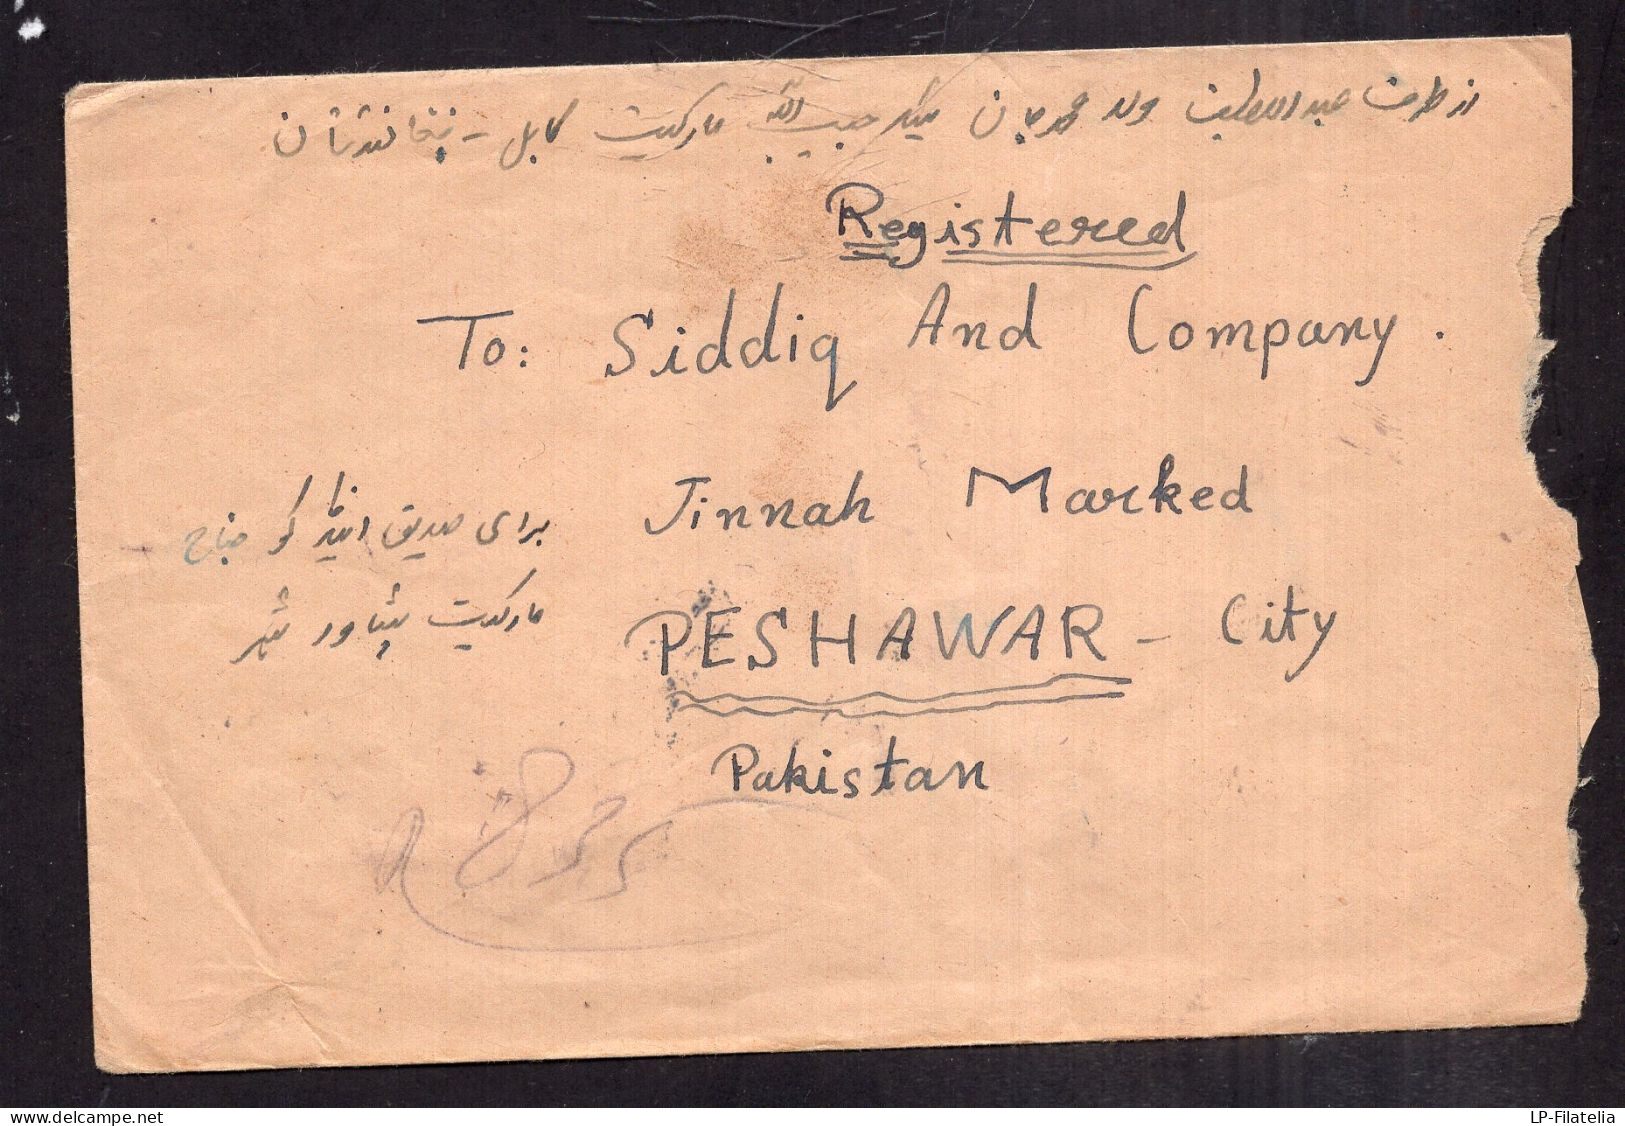 از طرف عبداللطیف ولد محمد جان حبیب الله مارکیت کابل - افغانستان
Registered
To: Siddiq And Company.
Jinnah Marked
برای صدیق اینڈ کو جناح
PESHAWAR - City
مارکیت پشاور شهر
Pakistan
delcampe.net
LP-Filatelia